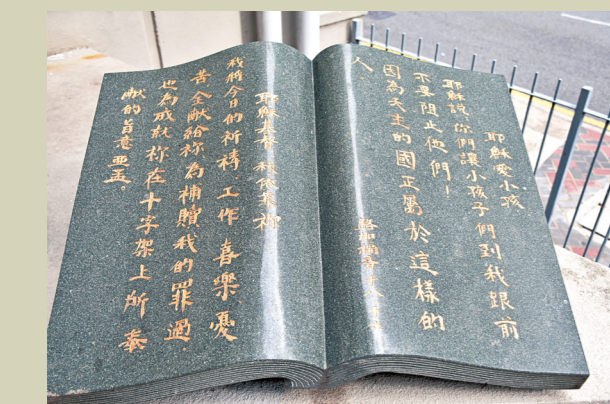 耶穌愛小孩
耶穌說:你們讓小孩子們到我跟前
不要阻止他們!
因為天主的國正屬於這樣的
人
路加福音
耶穌基督 我依靠祢
我將今日的祈禱 工作 喜樂、憂
苦全獻給祢為補贖我的罪過
也為成就祢在十字架上所奉
獻的旨意亞孟。